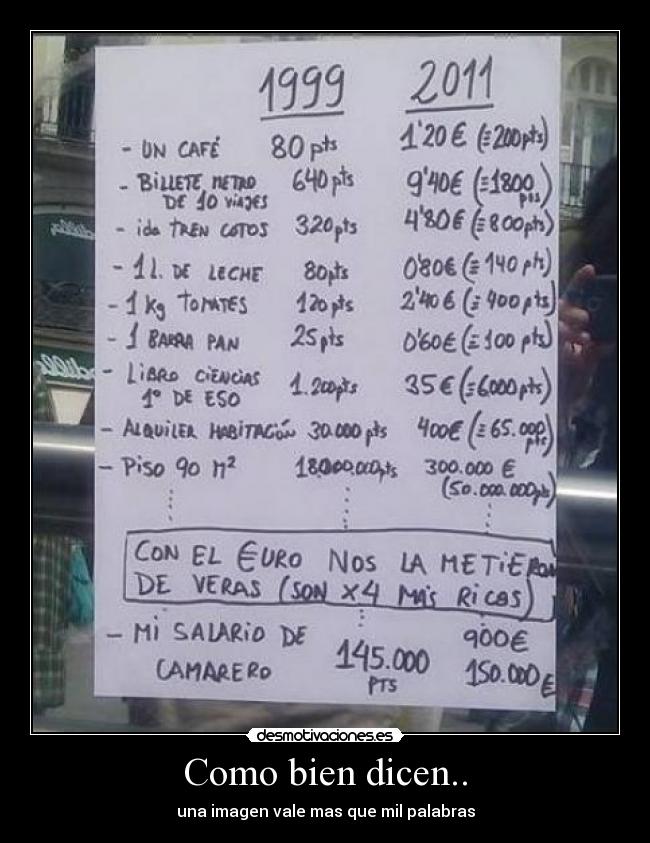 1999 2011
- UN CAFÉ 80 pts 1'20€ (≡200pts)
- BILLETE METRO DE 10 VIAJES 640 pts 9'40€ (≡1800 pts)
- ida TREN COTOS 320 pts 4'80€ (≡800pts)
- 1 l. DE LECHE 80pts 0'80€ (≡140 pts)
- 1 Kg TOMATES 120 pts 2'40€ (≡400pts)
- 1 BARRA PAN 25 pts 0'60€ (≡100 pts)
- LIBRO CIENCIAS 1º DE ESO 1.200pts 35€ (≡6000pts)
- ALQUILER HABITACIÓN 30.000 pts 400€ (≡65.000 pts)
- PISO 90 M² 18.000.000pts 300.000 € (50.000.000pts)
CON EL €URO NOS LA METIERON
DE VERAS (SON X4 MAS RICOS)
- MI SALARIO DE CAMARERO 145.000 PTS 900€ 150.000€
desmotivaciones.es
Como bien dicen..
una imagen vale mas que mil palabras